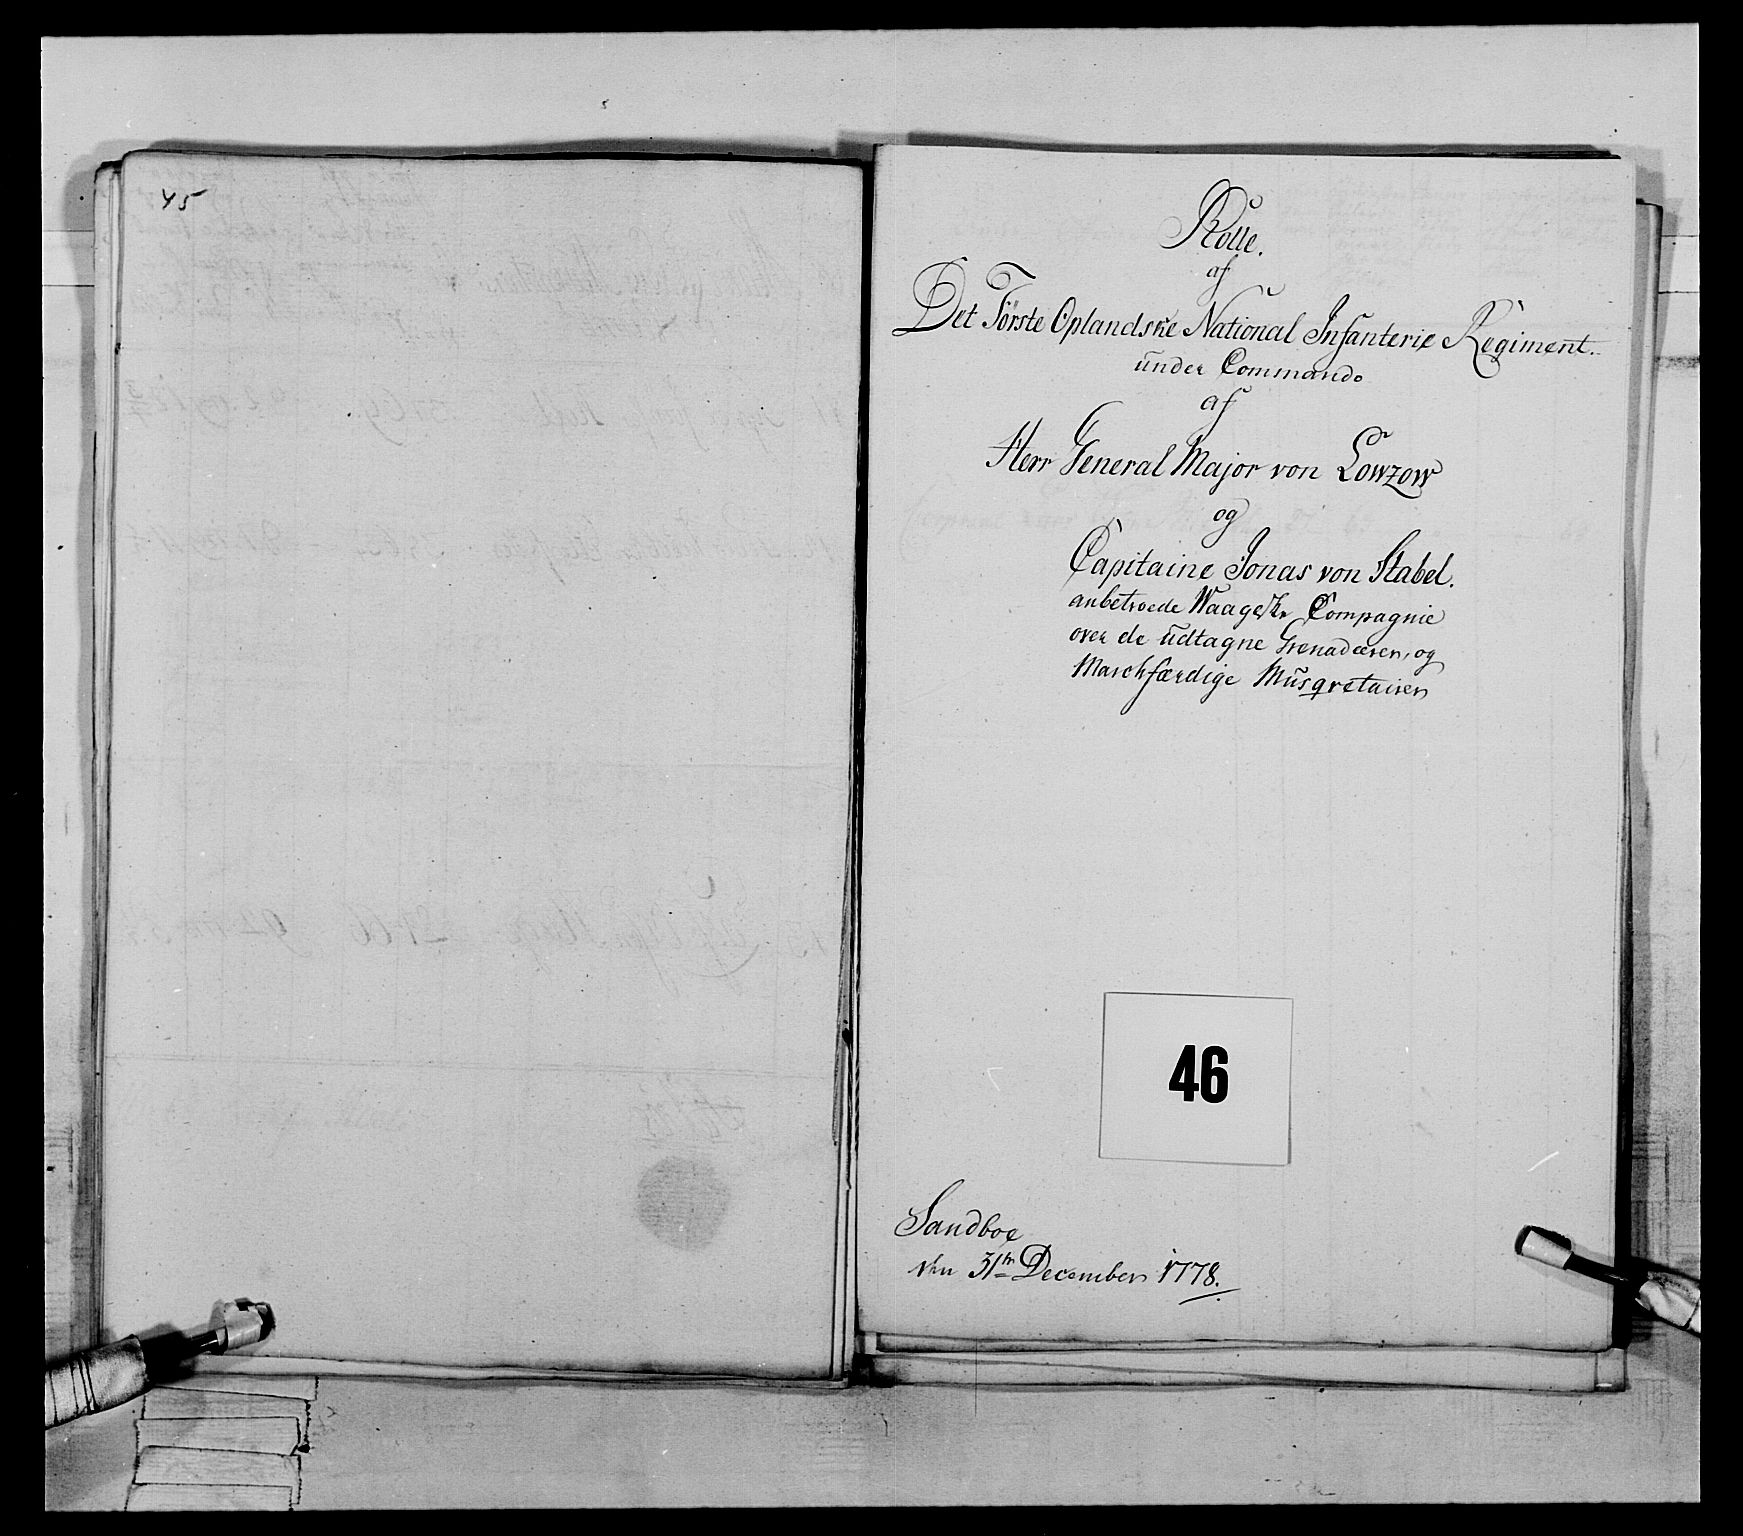 45
Rolle.
af
Det Förste Oplandske National Infanterie Regiment.
ŭnder Commando
af
Herr General Major von Lowzow
og
Capitaine Jonas von Stabel.
anbetroede Waageske Compagnie
over de ŭdtagne Grenadeerer, og
Marchfærdige Mŭsqvetairer
46
Sandboe
den 31th December 1778.